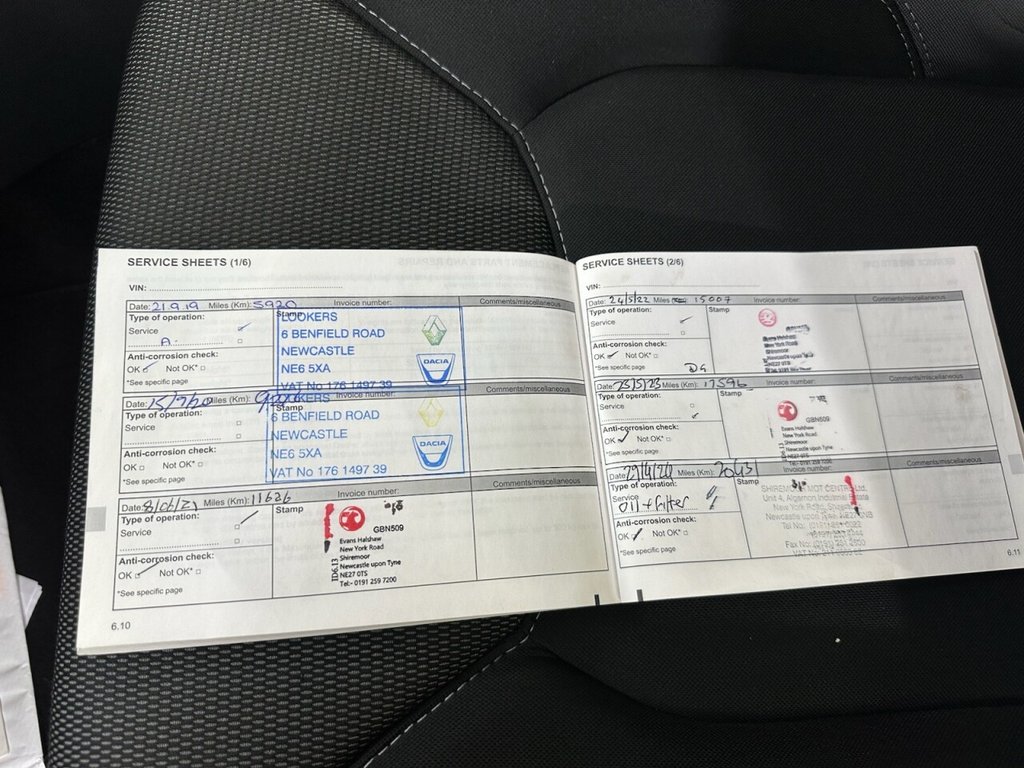 SERVICE SHEETS (1/6)
VIN:
Date: 21.9.19 Miles (Km): 5920 Invoice number: Comments/miscellaneous
Type of operation: Stamp
Service
A.
Anti-corrosion check:
OK Not OK*
*See specific page
LOOKERS
6 BENFIELD ROAD
NEWCASTLE
NE6 5XA
VAT No 176 1497 39
DACIA
Date: 15/7/20 Miles (Km): Invoice number: Comments/miscellaneous
Type of operation: Stamp
Service
Anti-corrosion check:
OK Not OK*
*See specific page
LOOKERS
6 BENFIELD ROAD
NEWCASTLE
NE6 5XA
VAT No 176 1497 39
DACIA
Date: 8/06/21 Miles (Km): 11626 Invoice number: Comments/miscellaneous
Type of operation: Stamp
Service
Anti-corrosion check:
OK Not OK*
*See specific page
GBN509
Evans Halshaw
New York Road
Shiremoor
Newcastle upon Tyne
NE27 0TS
Tel:- 0191 259 7200
ID6.13
6.10
SERVICE SHEETS (2/6)
VIN:
Date: 24/5/22 Miles 15007 Invoice number: Comments/miscellaneous
Type of operation: Stamp
Service
Anti-corrosion check:
OK Not OK*
*See specific page
Evans Halshaw
New York Road
Shiremoor
Newcastle upon Tyne
NE27 0TS
Date: 25/5/23 Miles (Km): 17596 Invoice number: Comments/miscellaneous
Type of operation: Stamp
Service
Anti-corrosion check:
OK Not OK*
*See specific page
GBN509
Evans Halshaw
New York Road
Shiremoor
Newcastle upon Tyne
NE27 0TS
Tel:- 0191 259 7200
Date: Miles (Km): 20451 Invoice number: Comments/miscellaneous
Type of operation: Stamp
Service
Oil + filter
Anti-corrosion check:
OK Not OK*
*See specific page
SHIREMOOR MOT CENTRE Ltd.
Unit 4, Algernon Industrial Estate
New York Road,
Newcastle upon Tyne
Tel No:
Fax No:
6.11